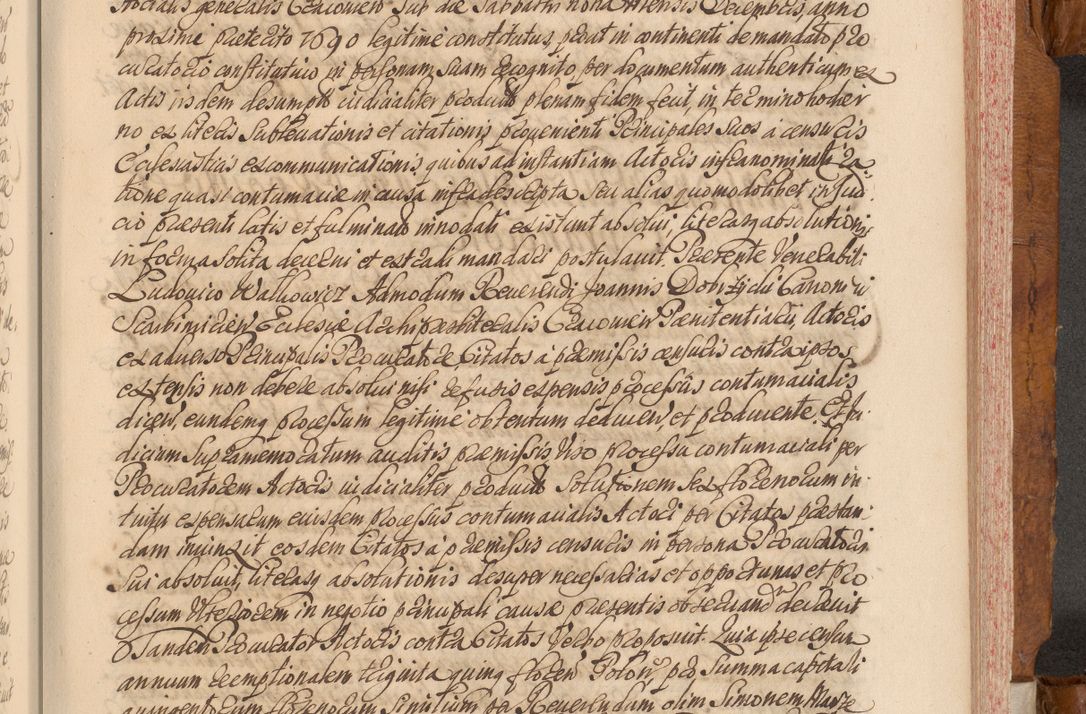 Notarialis generalis Cracovien Sub die Sabbathi nona Mensis Decembris anno
proxime præterito 1690 legitime constitutus, prout in continenti de mandato pro
curatorio constitutivo in personam suam recognito, per documentum authenticum ex
Actis iisdem desumptū iudicialiter produc̄ plenam fidem fecit, in termino hodier
no ex literis Sublevationis et citationis provenienti Principales Suos a censuris
Ecclesiasticis excommunicationis, quibus ad instantiam Actoris infranominati ra
tione quasi contumaciæ in causa infradescripta seu alias quomodolibet in Judi
cio præsenti latis et fulminatis innodati existunt absolvi, literasq absolutionis
in forma solita decerni et extradi mandari postulavit. Præsente Venerabili
Ludovico Walkowicz Admodum Reverendi Joannis Dobrzicki Canonici
Scarbimirien Ecclesiæ Archipræsbiteralis Cracovien Pœnitentiarii, Actoris
ex adverso Principalis Procuratore Citatos a præmissis censuris contra ipsos
extensis non debere absolvi nisi refusis expensis processus contumacialis
dicen, eundemq processum legitime obtentum deducen, et producente. Et Ju
dicium Supramemoratum auditis præmissis Viso processu contumaciali per
Procuratorem Actoris iudicialiter produc̄ Solutionem sex florenorum in
tuitu expensarum eiusdem processus contumacialis Actori per Citatos præstan
dam iniunxit eosdem Citatos a præmissis censuris in persona Procuratoris
sui absolvit, literasq absolutionis desuper necessarias et opportunas et pro
cessum Ulteriorem in negotio principali causæ præsentis observand decrevit
Tandem Procurator Actoris contra Citatos Verbo proposuit. Quia ipse censum
annuum reemptionalem triginta quinq floren Polon, pro Summa capitali
quingentorum florenorum Similium per Reverendum olim Simonem